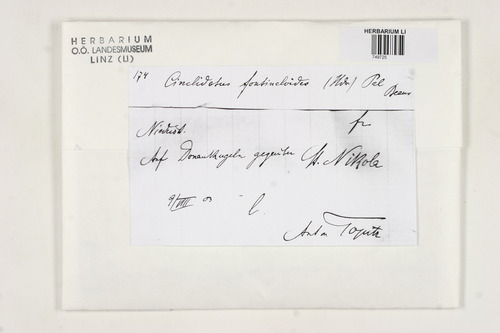 HERBARIUM
O.Ö. LANDESMUSEUM
LINZ (LI)
HERBARIUM LI
749725
174 Cinclidotus fontinaloides (Hdw) Pal Beauv
fr
Niederöst.
Auf Donaukugeln gegenüber St. Nikola
9/VIII 03 l.
Anton Topitz